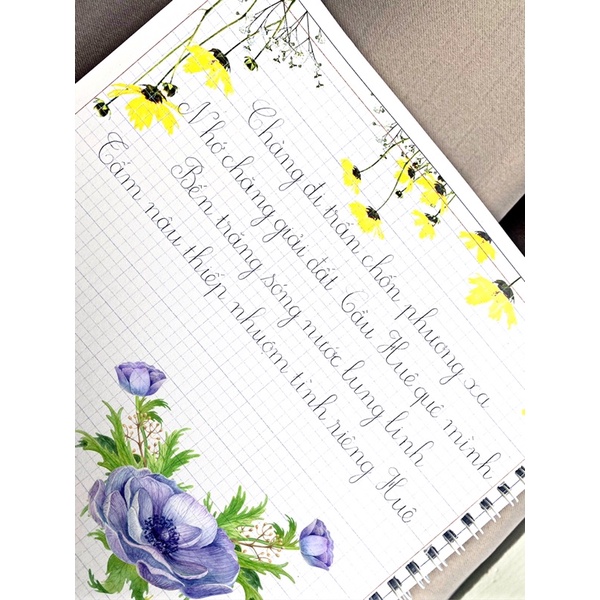 Chàng đi trấn chốn phương xa
Nhớ chăng giải đất Cầu Huê quê mình
Bến trăng sóng nước lung linh
Tấm nâu thiếp nhuộm tình riêng Huê